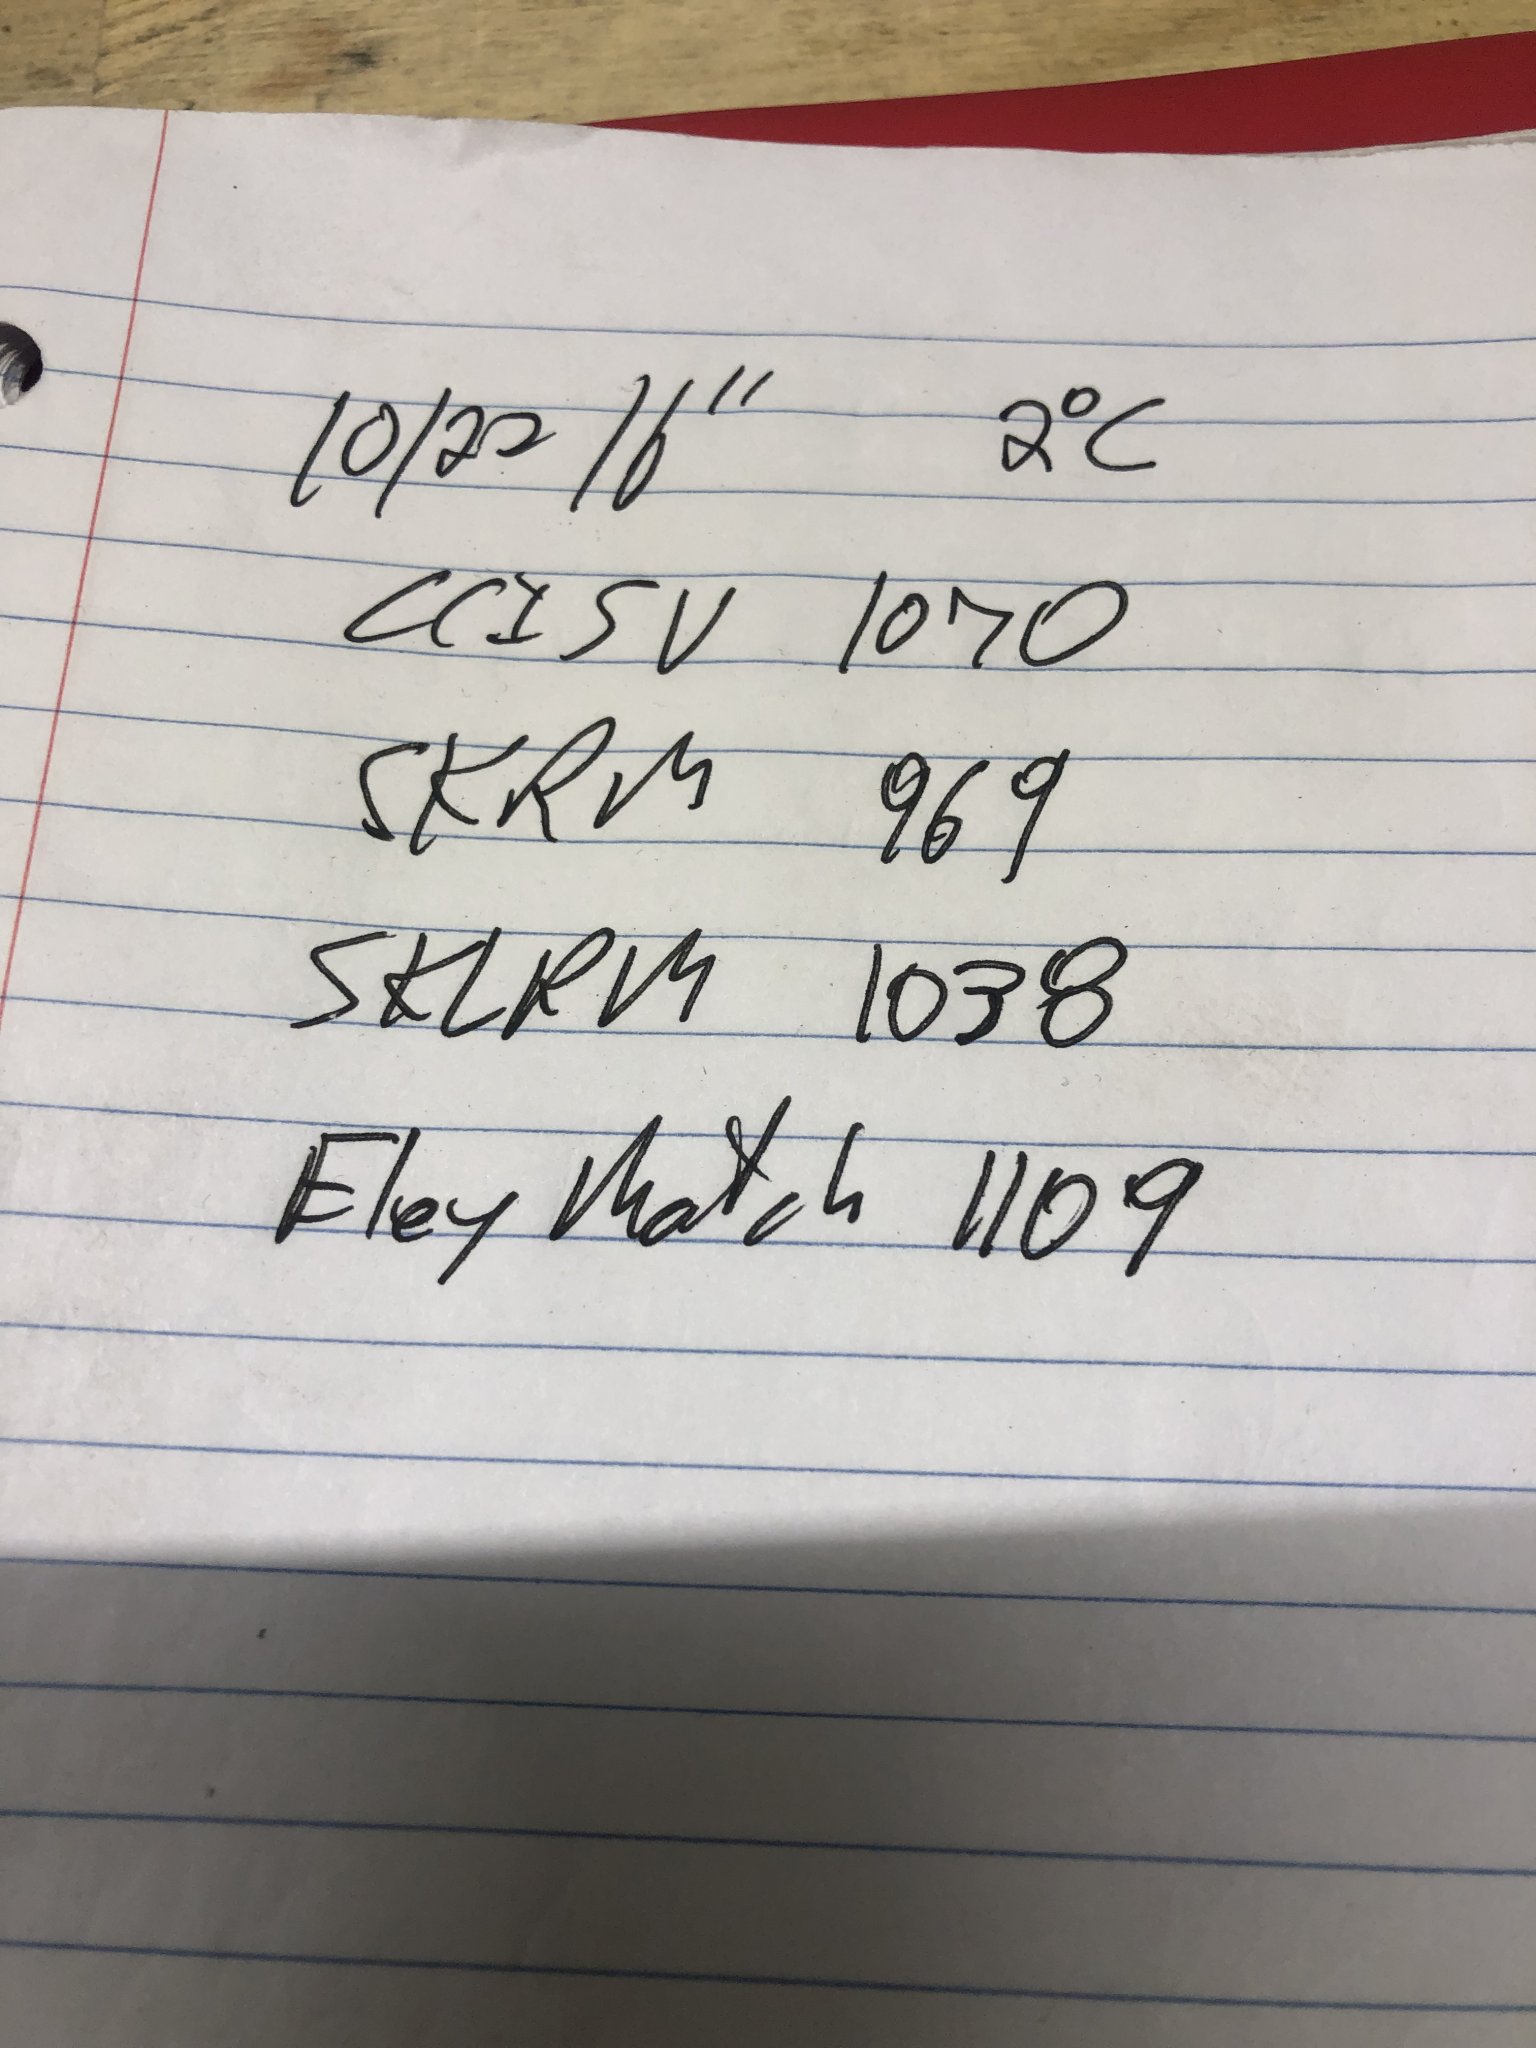 10/22 16" 2°C
CCISV 1070
SKRM 969
SKLRM 1038
Eley Match 1109